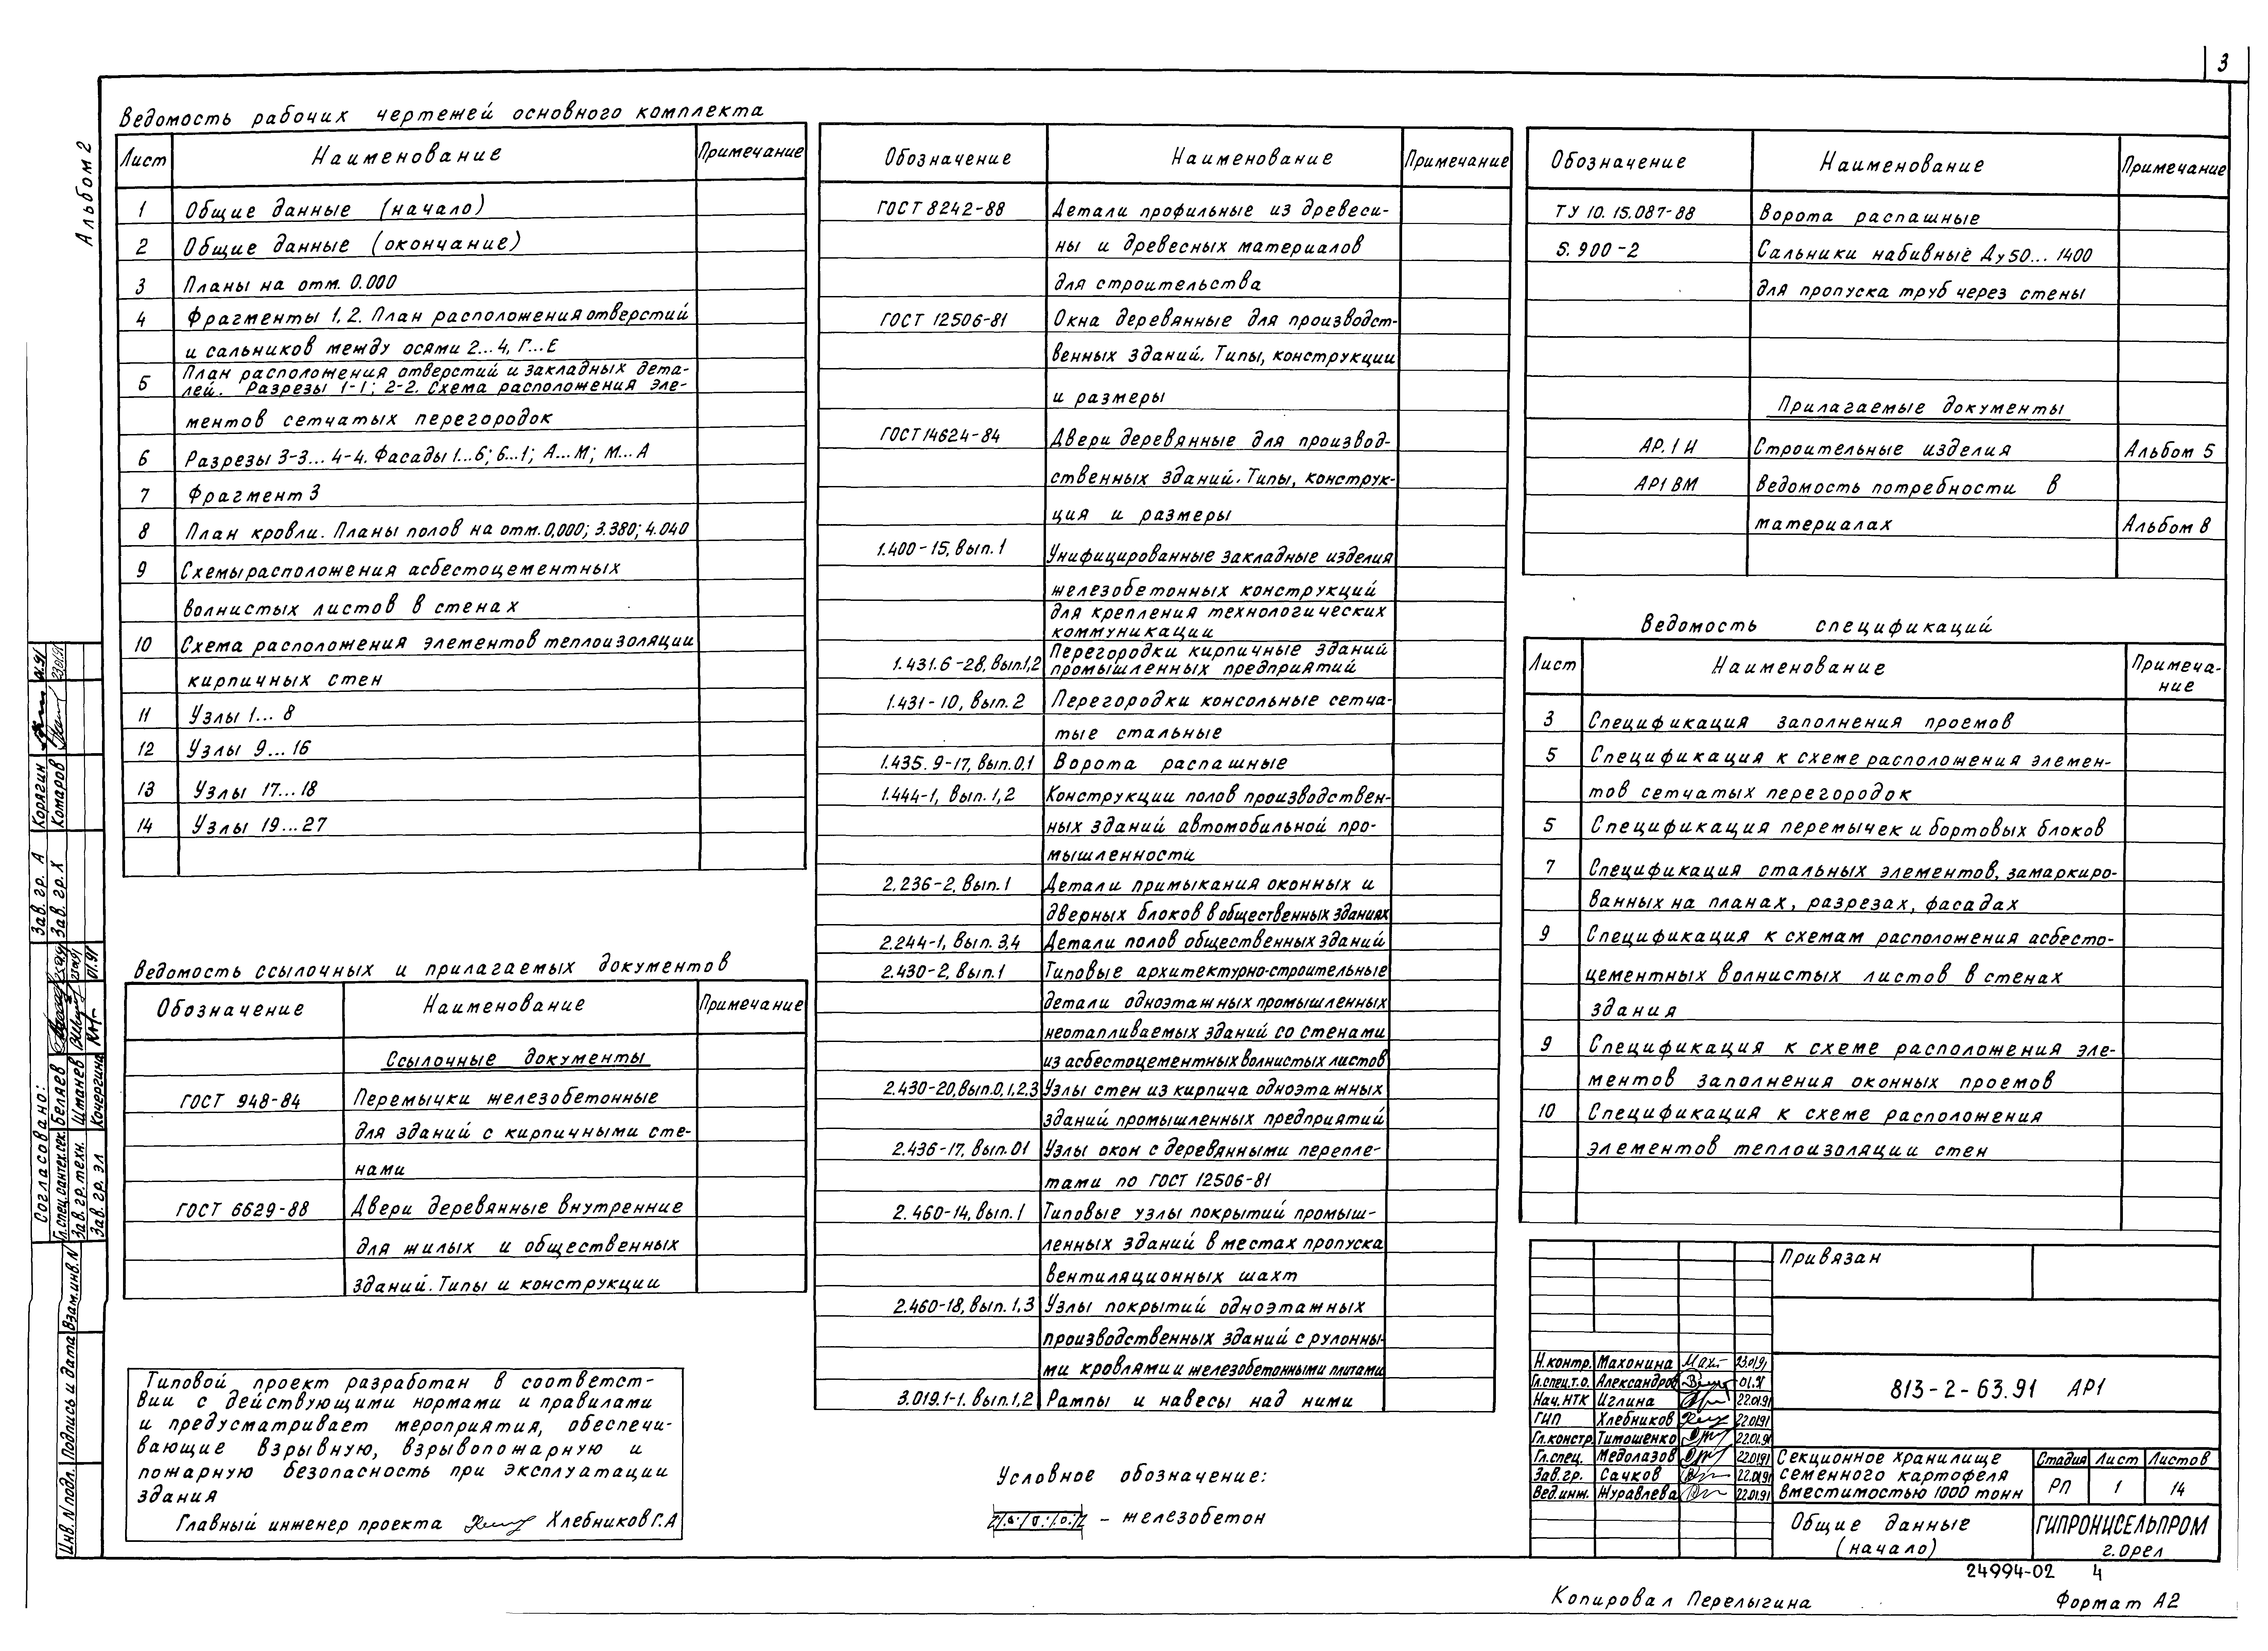 3
Альбом 2
Ведомость рабочих чертежей основного комплекта
Лист Наименование Примечание
1 Общие данные (начало)
2 Общие данные (окончание)
3 Планы на отм. 0.000
4 Фрагменты 1, 2. План расположения отверстий
и сальников между осями 2...4, Г...Е
5 План расположения отверстий и закладных дета-
лей. Разрезы 1-1; 2-2. Схема расположения эле-
ментов сетчатых перегородок
6 Разрезы 3-3... 4-4. Фасады 1...6; 6...1; А...М; М...А
7 Фрагмент 3
8 План кровли. Планы полов на отм. 0,000; 3.380; 4.040
9 Схемы расположения асбестоцементных
волнистых листов в стенах
10 Схема расположения элементов теплоизоляции
кирпичных стен
11 Узлы 1... 8
12 Узлы 9...16
13 Узлы 17...18
14 Узлы 19...27
Ведомость ссылочных и прилагаемых документов
Обозначение Наименование Примечание
Ссылочные документы
ГОСТ 948-84 Перемычки железобетонные
для зданий с кирпичными сте-
нами
ГОСТ 6629-88 Двери деревянные внутренние
для жилых и общественных
зданий. Типы и конструкции
Типовой проект разработан в соответст-
вии с действующими нормами и правилами
и предусматривает мероприятия, обеспечи-
вающие взрывную, взрывопожарную и
пожарную безопасность при эксплуатации
здания
Главный инженер проекта Хлебников Г.А
Обозначение Наименование Примечание
ГОСТ 8242-88 Детали профильные из древеси-
ны и древесных материалов
для строительства
ГОСТ 12506-81 Окна деревянные для производст-
венных зданий. Типы, конструкции
и размеры
ГОСТ 14624-84 Двери деревянные для производ-
ственных зданий. Типы, конструк-
ция и размеры
1.400-15, вып. 1 Унифицированные закладные изделия
железобетонных конструкций
для крепления технологических
коммуникации
1.431.6-28, вып.1,2 Перегородки кирпичные зданий
промышленных предприятий
1.431-10, вып. 2 Перегородки консольные сетча-
тые стальные
1.435.9-17, вып.0,1 Ворота распашные
1.444-1, вып. 1,2 Конструкции полов производствен-
ных зданий автомобильной про-
мышленности
2.236-2, вып.1 Детали примыкания оконных и
дверных блоков в общественных зданиях
2.244-1, вып. 3,4 Детали полов общественных зданий
2.430-2, вып.1 Типовые архитектурно-строительные
детали одноэтажных промышленных
неотапливаемых зданий со стенами
из асбестоцементных волнистых листов
2.430-20, вып.0,1,2,3 Узлы стен из кирпича одноэтажных
зданий промышленных предприятий
2.436-17, вып.01 Узлы окон с деревянными перепле-
тами по ГОСТ 12506-81
2.460-14, вып.1 Типовые узлы покрытий промыш-
ленных зданий в местах пропуска
вентиляционных шахт
2.460-18, вып.1,3 Узлы покрытий одноэтажных
производственных зданий с рулонны-
ми кровлями и железобетонными плитами
3.019.1-1. вып.1,2 Рампы и навесы над ними
Условное обозначение:
– железобетон
Обозначение Наименование Примечание
ТУ 10.15.087-88 Ворота распашные
5.900-2 Сальники набивные Ду 50... 1400
для пропуска труб через стены
Прилагаемые документы
АР.1 И Строительные изделия Альбом 5
АР1 ВМ Ведомость потребности в
материалах Альбом 8
Ведомость спецификаций
Лист Наименование Примеча-
ние
3 Спецификация заполнения проемов
5 Спецификация к схеме расположения элемен-
тов сетчатых перегородок
5 Спецификация перемычек и бортовых блоков
7 Спецификация стальных элементов, замаркиро-
ванных на планах, разрезах, фасадах
9 Спецификация к схемам расположения асбесто-
цементных волнистых листов в стенах
здания
9 Спецификация к схеме расположения эле-
ментов заполнения оконных проемов
10 Спецификация к схеме расположения
элементов теплоизоляции стен
Привязан
Н.контр. Махонина Мах. 23.01.91
Гл.спец.т.о. Александров 01.91
Нач.НТК Иглина 22.01.91
ГИП Хлебников 22.01.91
Гл.констр. Тимошенко 22.01.91
Гл.спец. Медолазов 22.01.91
Зав.гр. Сачков 22.01.91
Вед.инж. Журавлева 22.01.91
813-2-63.91 АР1
Секционное хранилище
семенного картофеля
вместимостью 1000 тонн
Стадия Лист Листов
РП 1 14
Общие данные
(начало)
ГИПРОНИСЕЛЬПРОМ
г. Орел
24994-02 4
Копировал Перелыгина Формат А2
Согласовано:
Гл.спец.сантех.сек. Беляев
Зав. гр. техн. Шманев
Зав. гр. эл Кочергина 01.91
Зав. гр. А Корягин 01.91
Зав. гр. Х Комаров 23.01.91
Инв. N подл. Подпись и дата Взам.инв. N